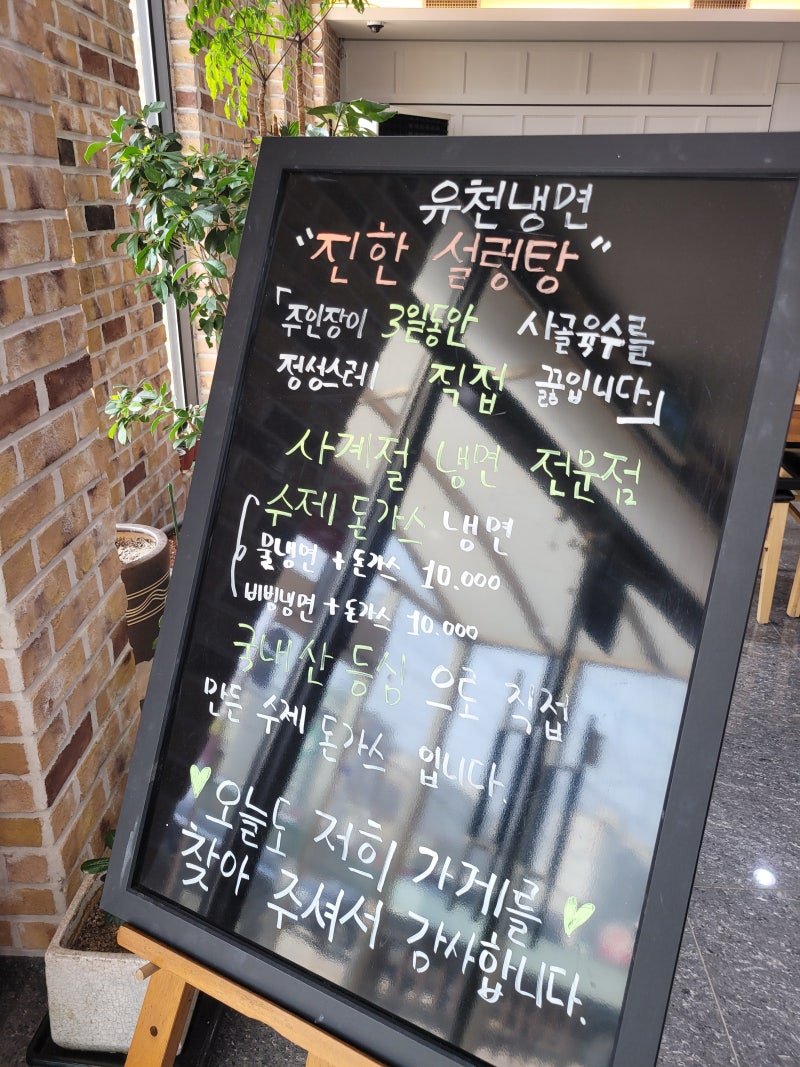 유천냉면
"진한 설렁탕"
「주인장이 3일동안 사골육수를
정성스레 직접 끓입니다.」
사계절 냉면 전문점
수제 돈가스 냉면
물냉면 + 돈가스 10.000
비빙냉면 + 돈가스 10.000
국내산 등심 으로 직접
만든 수제 돈가스 입니다.
오늘도 저희 가게를
찾아 주셔서 감사합니다.